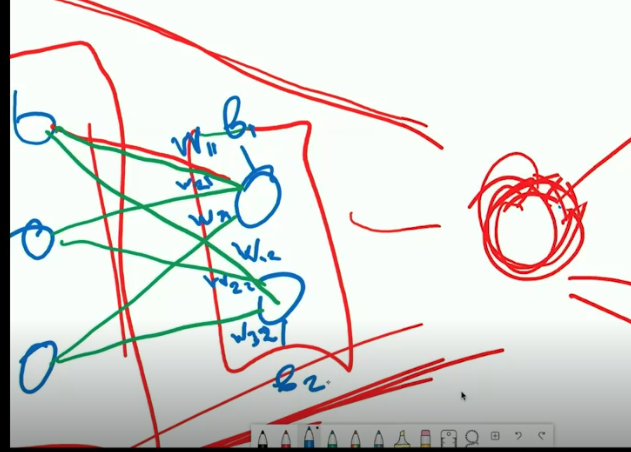 B1
W11
W21
W31
W12
W22
W32
B2